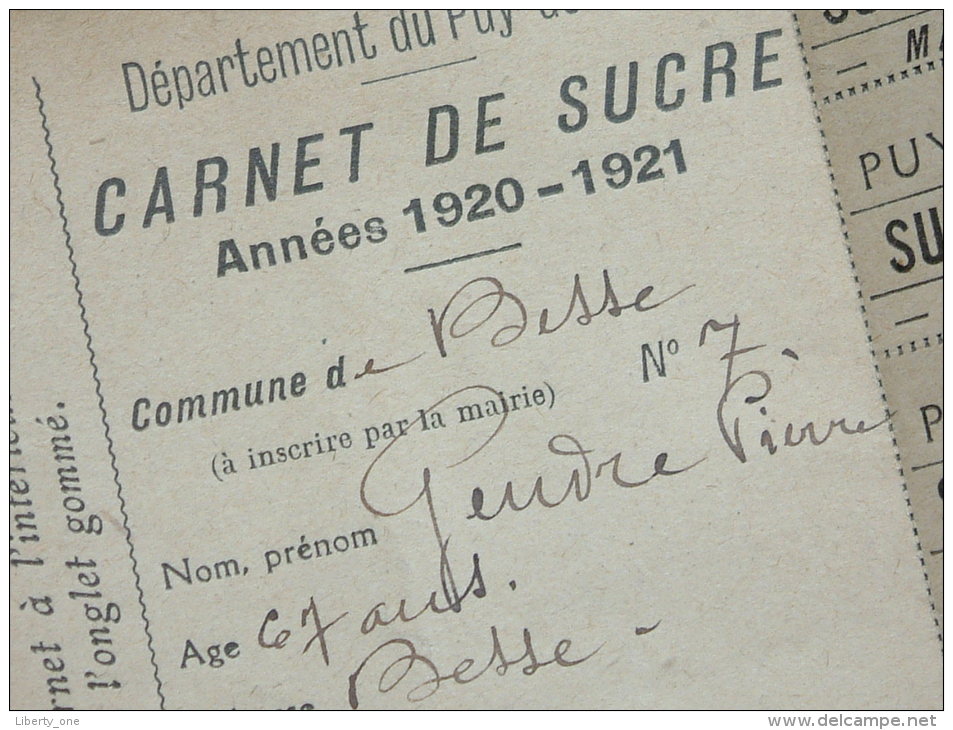 Département du Puy de
CARNET DE SUCRE
Années 1920-1921
Commune de Besse
(à inscrire par la mairie) N° 7
Nom, prénom Gendre Pierre
Age 67 ans.
Besse -
rnet à l'intérieu
l'onglet gommé.
MA
PUY
SU
P
Liberty_one
delcampe.net